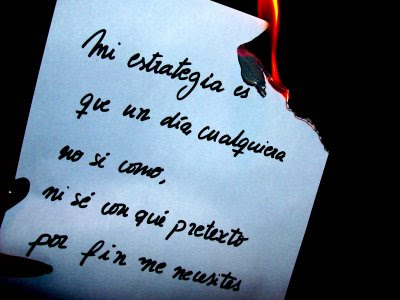 Mi estrategia es
que un día cualquiera
no si como,
ni sé con qué pretexto
por fin me necesites